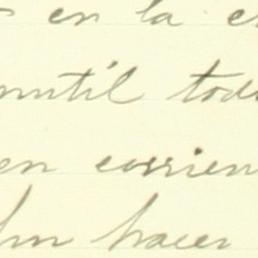 en la
inutil tod
en corrien
hacer